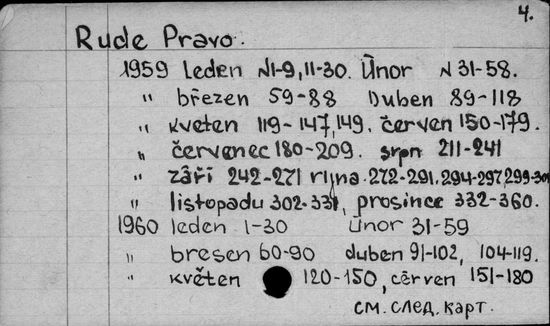 4.
Rude Pravo.
1959 leden N1-9, 11-30. Únor N 31-58.
" březen 59-88 Duben 89-118
" květen 119-147, 149. červen 150-179.
" červenec 180-209. srpn 211-241
" září 242-271 rijna 272-291, 294-297, 299-301
" listopadu 302-331, prosince 332-360.
1960 leden 1-30 Únor 31-59
" bresen 60-90 duben 91-102, 104-119.
" květen 120-150, cerven 151-180
см. след. карт.